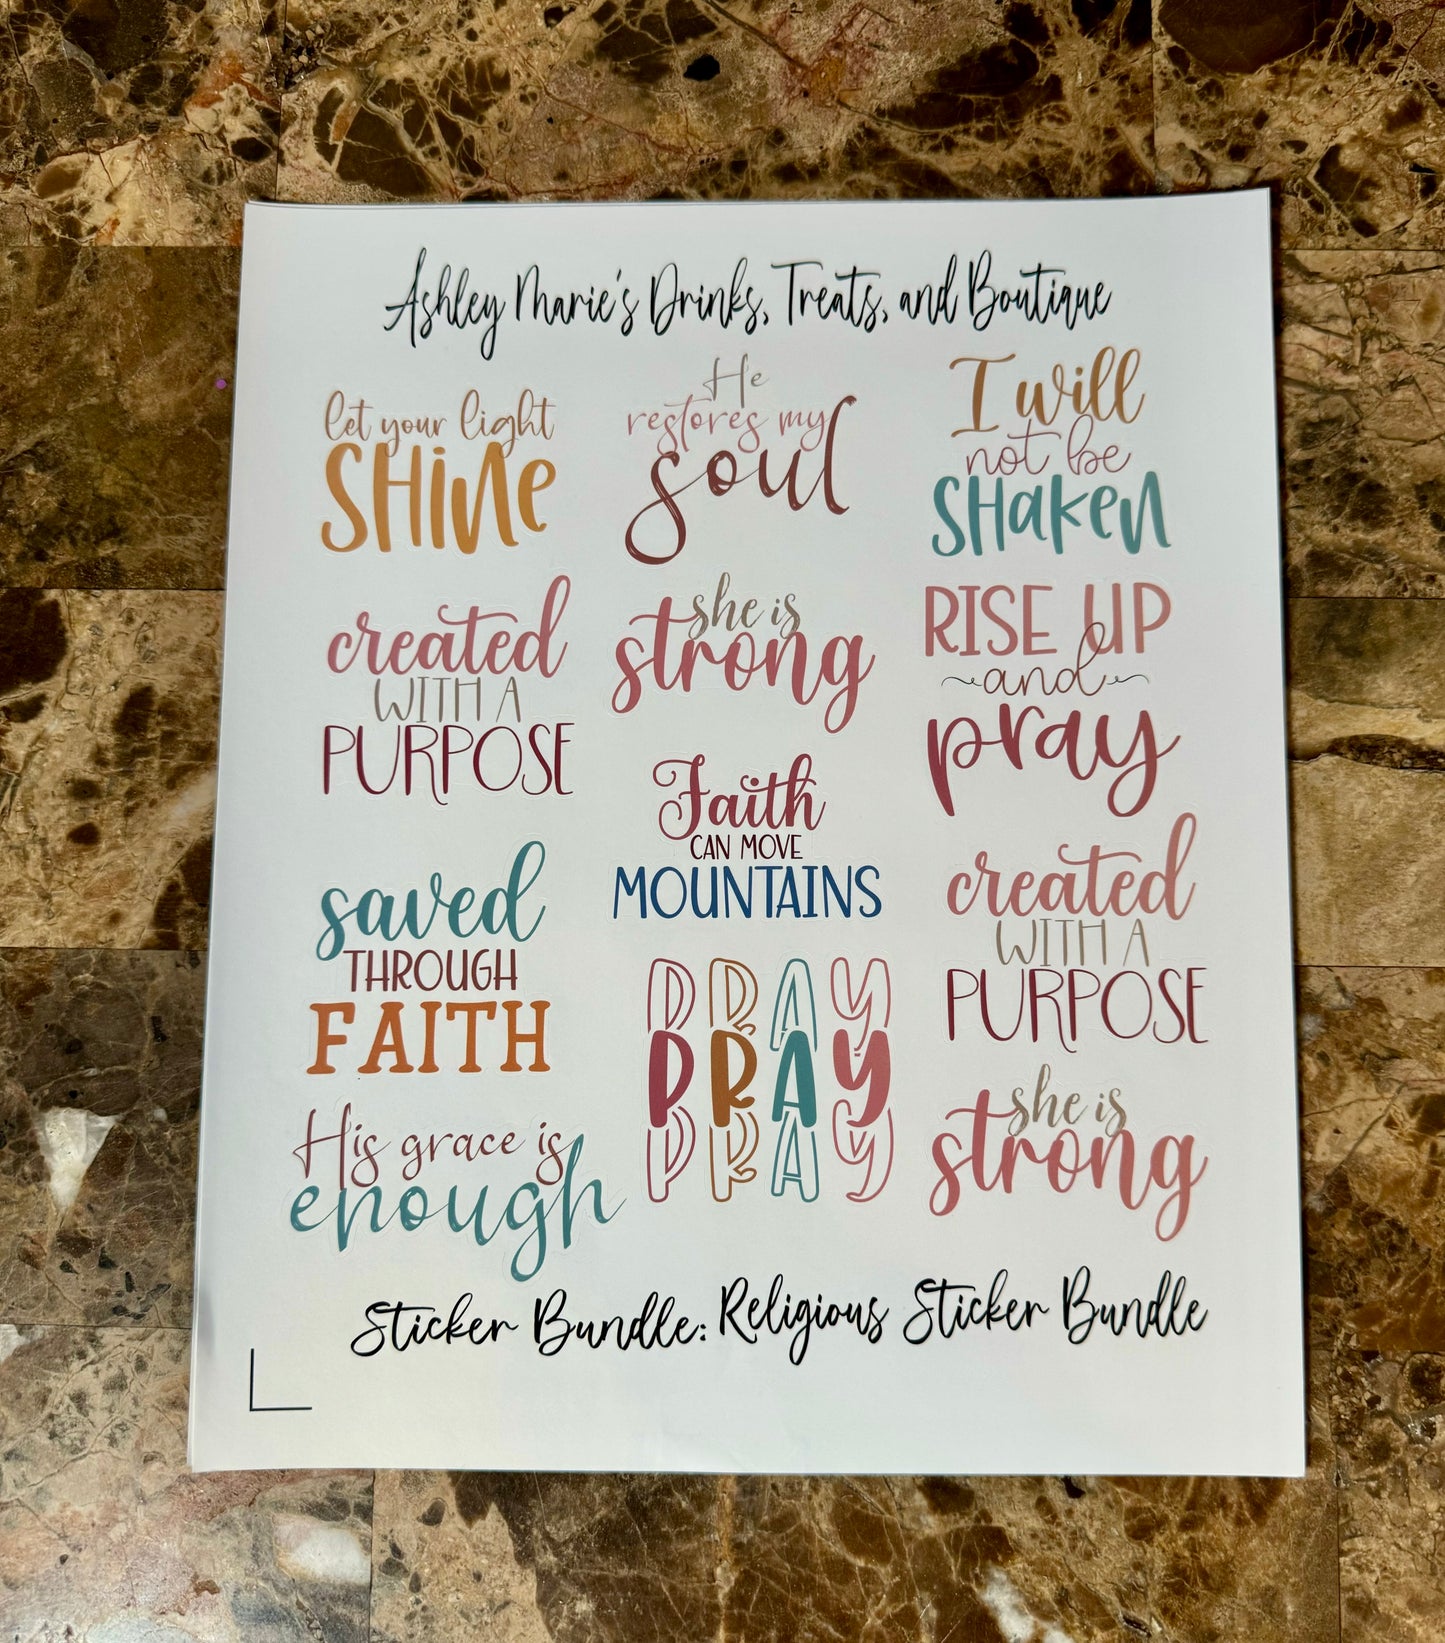 Ashley Marie's Drinks, Treats, and Boutique
let your light
SHiNe
He
restores my
soul
I will
not be
SHaKeN
created
WITH A
PURPOSE
she is
strong
RISE UP
and
pray
saved
THROUGH
FAITH
Faith
CAN MOVE
MOUNTAINS
created
WITH A
PURPOSE
His grace is
enough
PRAY
PRAY
PRAY
she is
strong
Sticker Bundle: Religious Sticker Bundle